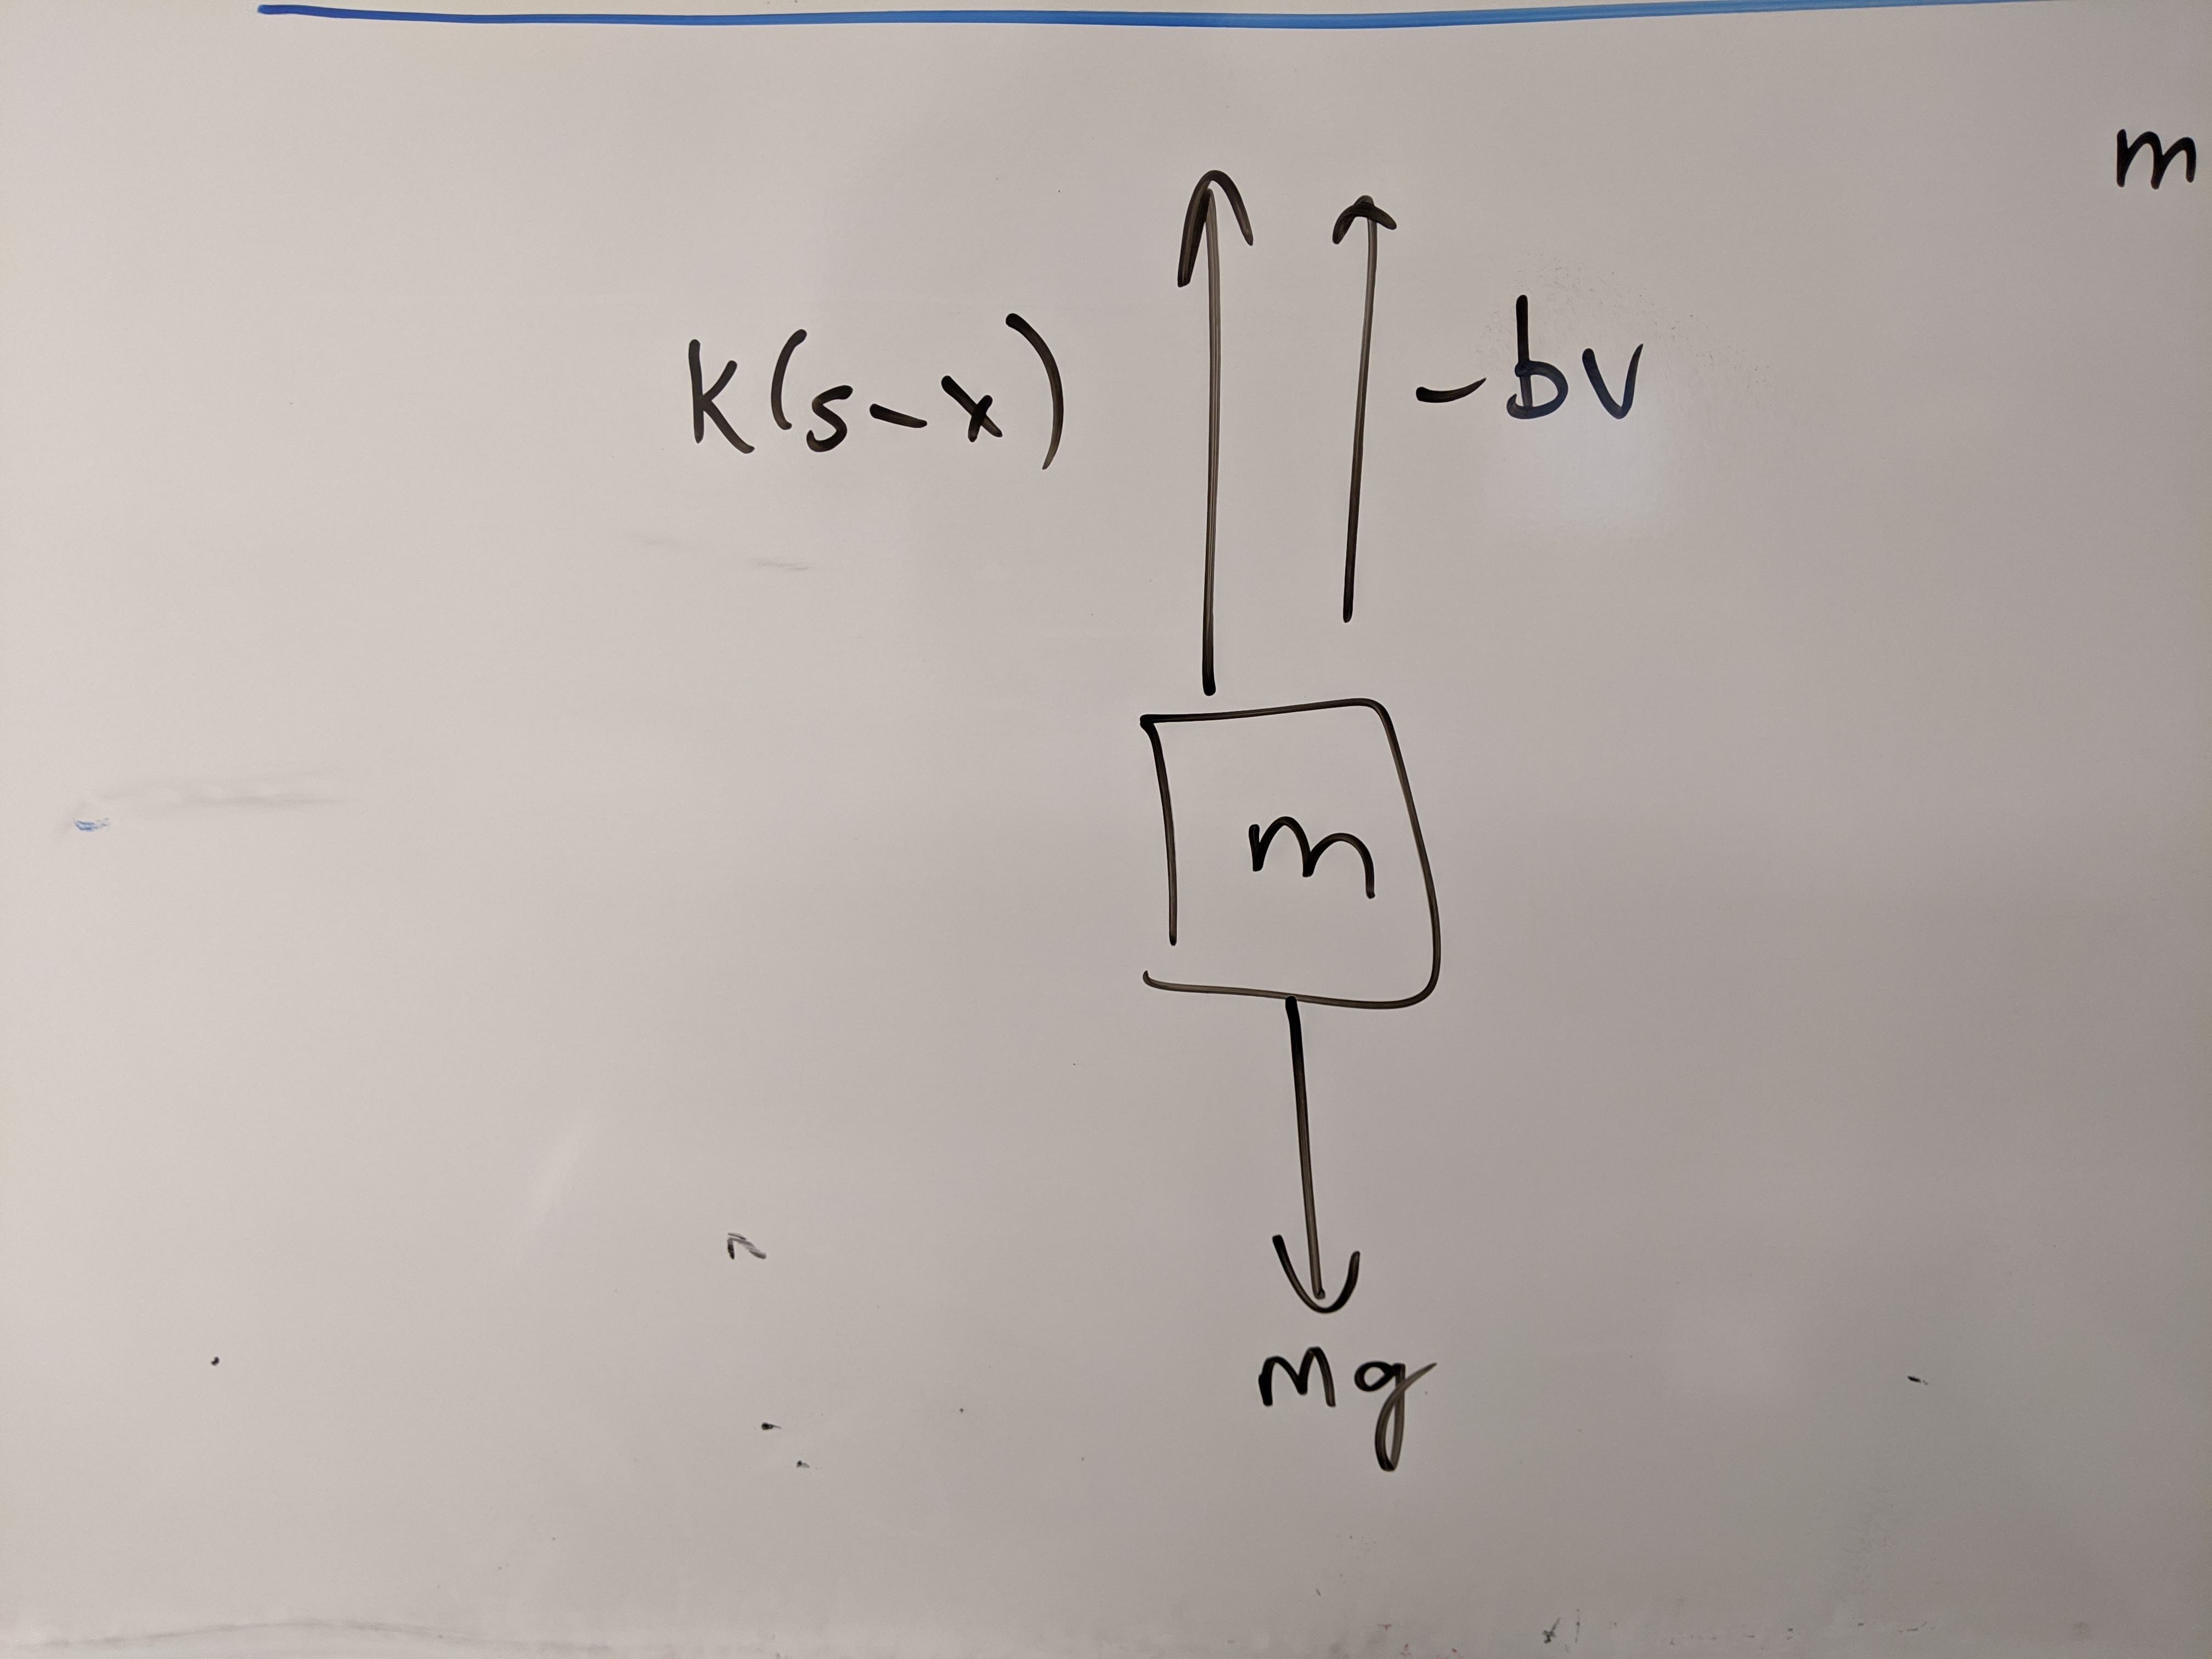 m
k(s-x)
-bv
m
mg